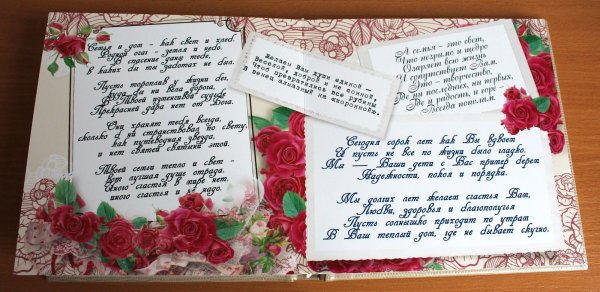 Семья и дом - как свет и хлеб.
Родной очаг - земля и небо.
В спасение даны тебе,
в каких бы ты заботах не был.
Пусть торопят у жизни дни,
куда бы ни вела дорога,
В Твоей изменчивой судьбе
Прекрасней дара нет от Бога.
Они хранят тебя всегда,
сколько б ни странствовал по свету,
как путеводная звезда,
и нет святей святыни этой.
Твоей семьи тепло и свет -
Вот лучшая душе отрада.
Иного счастья в мире нет,
иного счастья и не надо.
Желаем Вам души единой -
Веселой, доброй и не сонной,
Чтоб превратились все рубины
В венец алмазный на «коронной».
А семья - это свет,
Что незримо и щедро
Озарит всю жизнь
И сопутствует Вам.
Это - творчество,
Где ни последних, ни первых,
Где и радость, и горе -
Всегда пополам.
Сегодня сорок лет как Вы вдвоем
И пусть не все по жизни было гладко.
Мы — Ваши дети с Вас пример берем
Надежности, покоя и порядка.
Мы долгих лет желаем счастья Вам,
Любви, здоровья и благополучья
Пусть солнышко приходит по утрам
В Ваш теплый дом, где не бывает скучно.